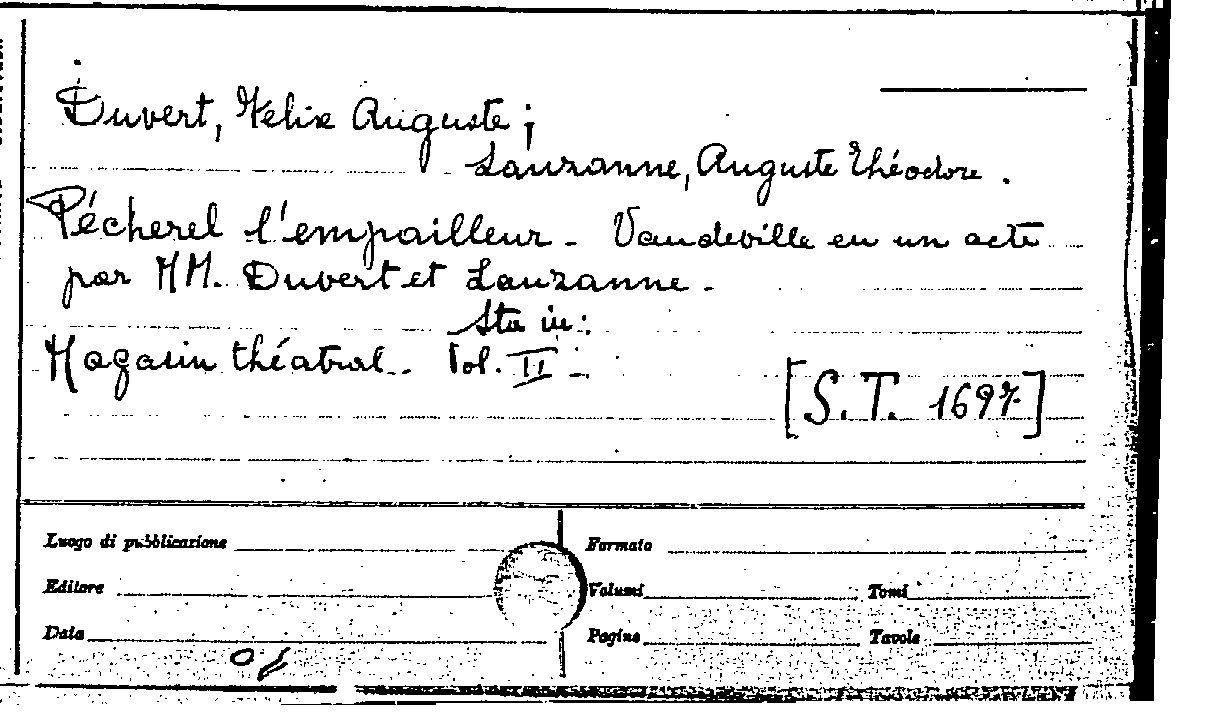 Duvert, Felix Auguste;
Lauzanne, Auguste Théodore.
Pécherel l'empailleur - Vaudeville en un acte
par MM. Duvert et Lauzanne.
Sta in:
Magasin théatral. Vol. II -
[S.T. 1697]
Luogo di pubblicazione
Formato
Editore
Volumi
Tomi
Data
Pagine
Tavole